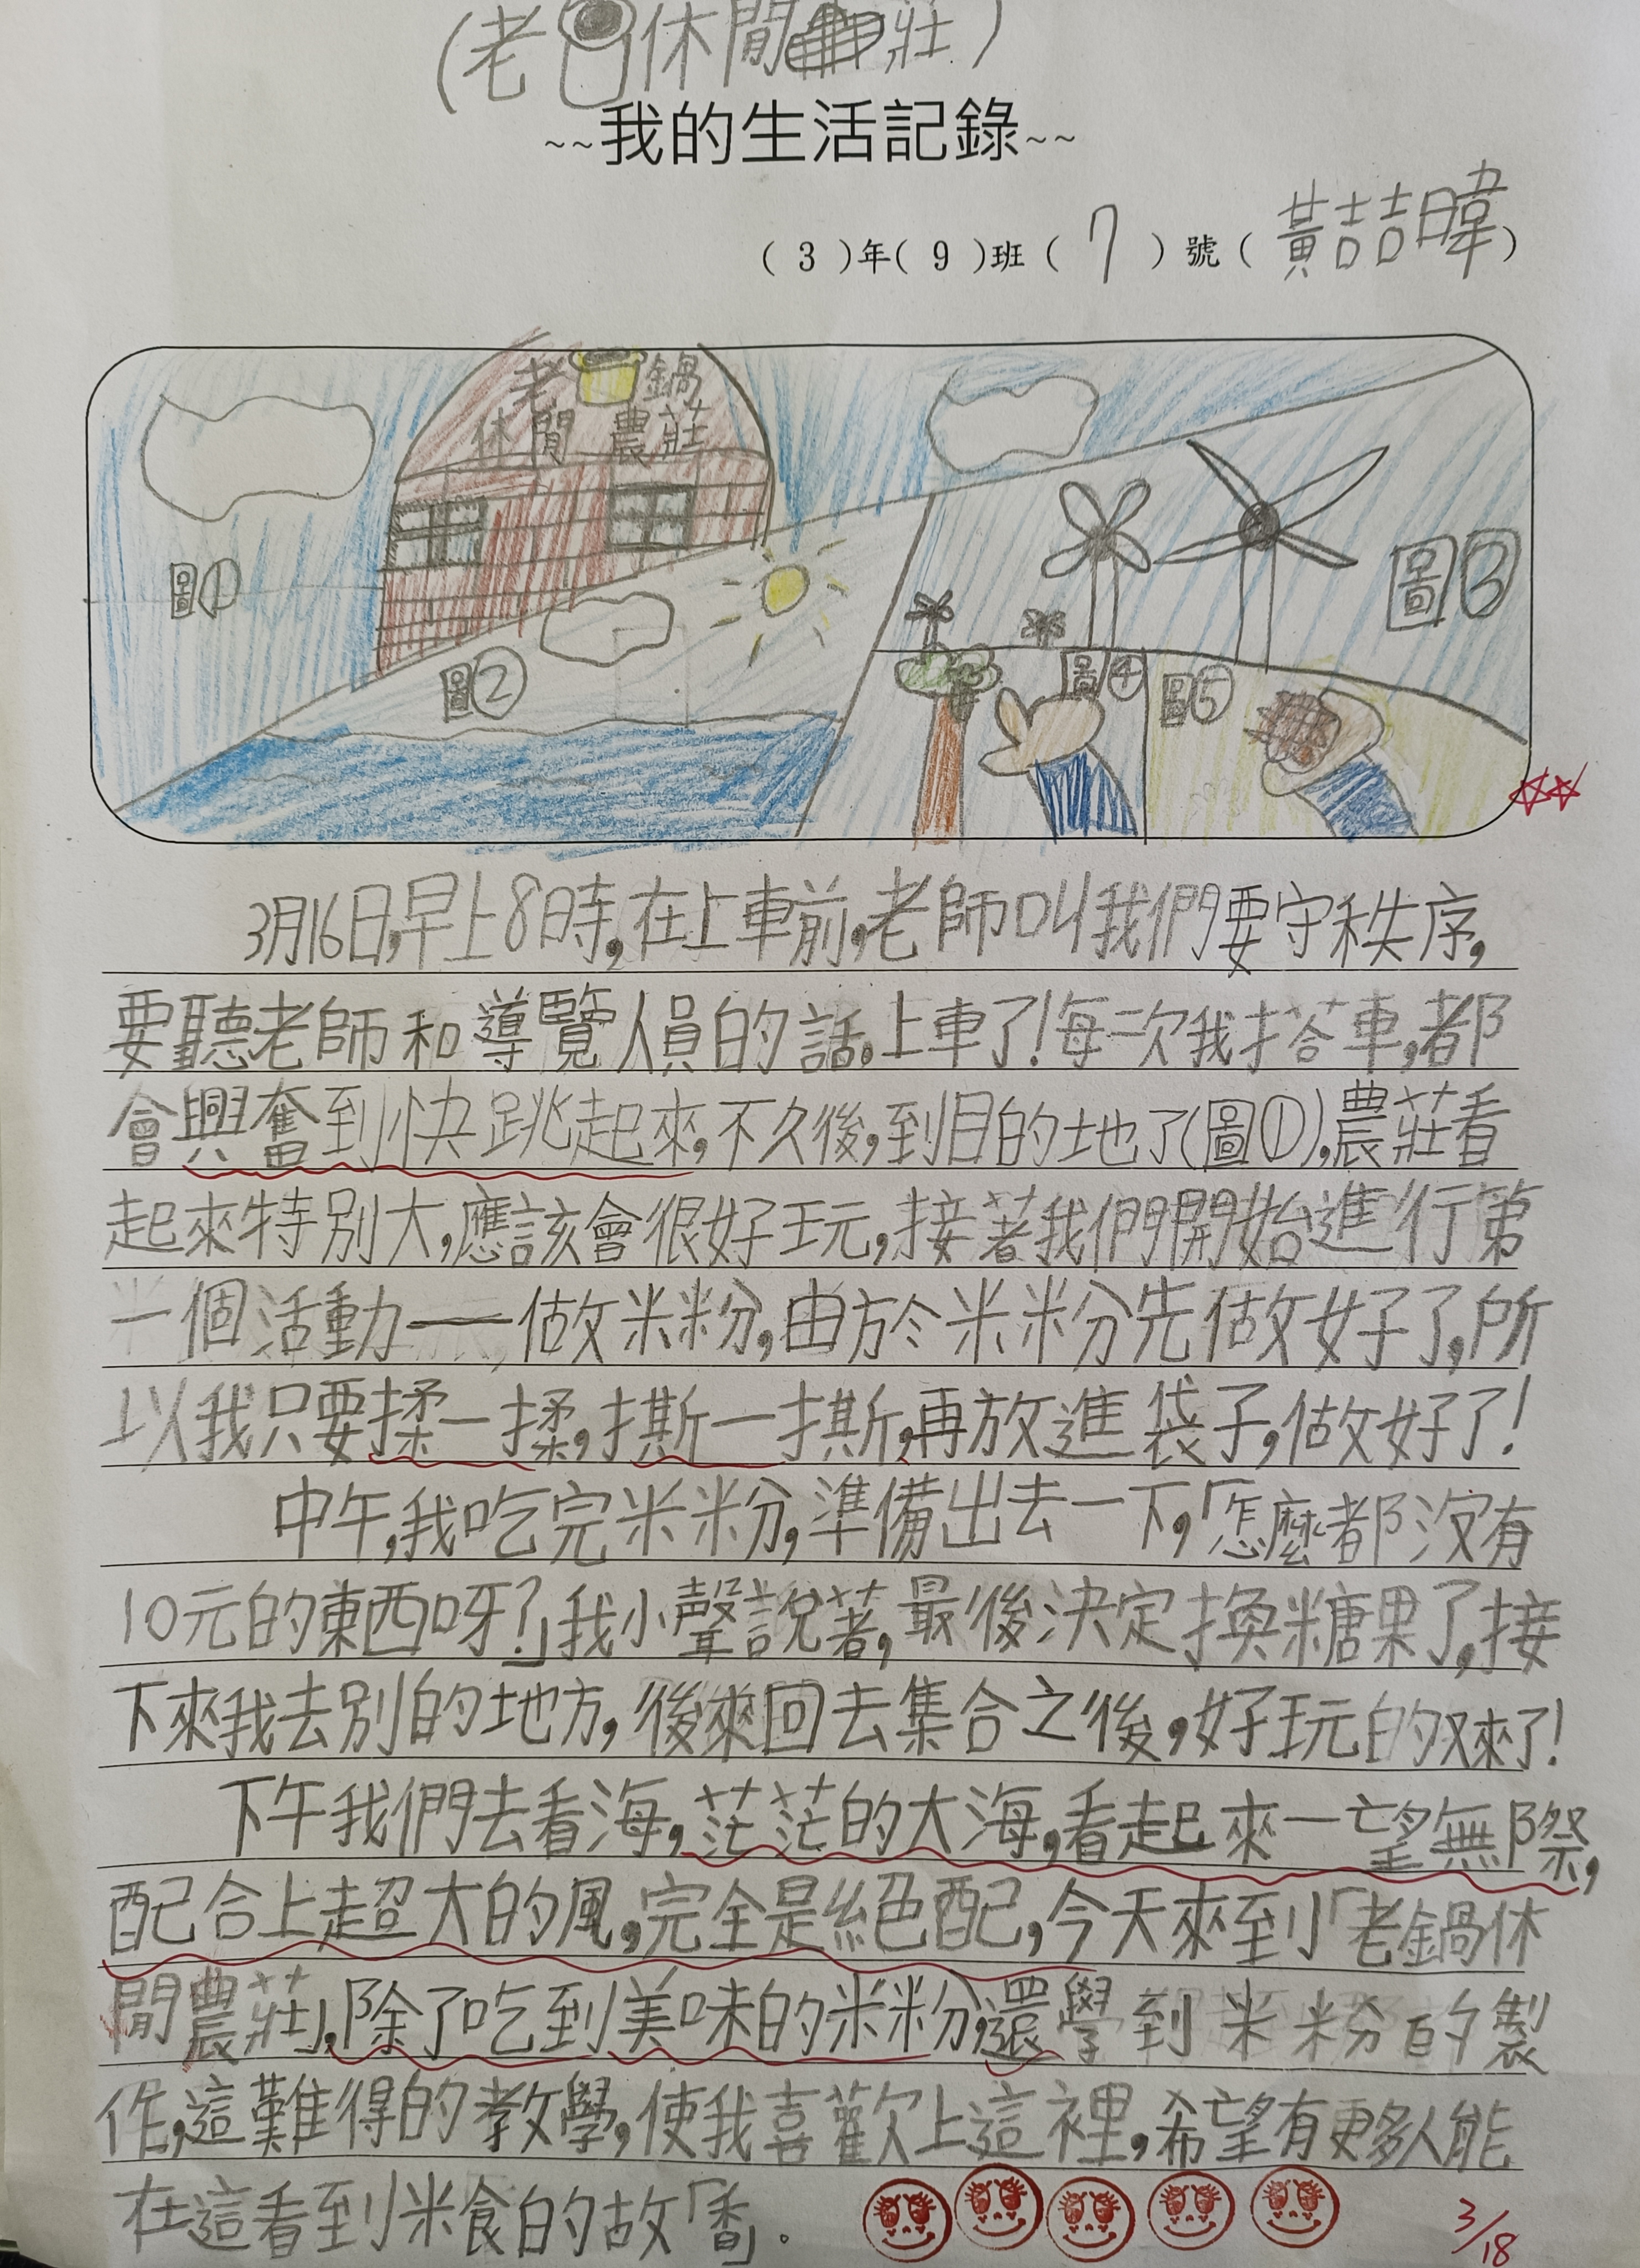 (老 休閒 莊)
~~我的生活記錄~~
(3)年(9)班(7)號(黃喆暐)
老 鍋
休閒 農莊
圖①
圖②
圖③
圖④
圖⑤
3月16日,早上8時,在上車前,老師叫我們要守秩序,
要聽老師和導覽人員的話。上車了!每次我搭車,都
會興奮到快跳起來,不久後,到目的地了(圖①),農莊看
起來特別大,應該會很好玩,接著我們開始進行第
一個活動——做米粉,由於米粉先做好了,所
以我只要揉一揉,撕一撕,再放進袋子,做好了!
中午,我吃完米粉,準備出去一下,「怎麼都沒有
10元的東西呀?」我小聲說著,最後決定換糖果了,接
下來我去別的地方,後來回去集合之後,好玩的又來了!
下午我們去看海,茫茫的大海,看起來一望無際,
配合上超大的風,完全是絕配,今天來到「老鍋休
閒農莊」,除了吃到美味的米粉,還學到米粉的製
作,這難得的教學,使我喜歡上這裡,希望有更多人能
在這看到米食的故「香」.
3/18